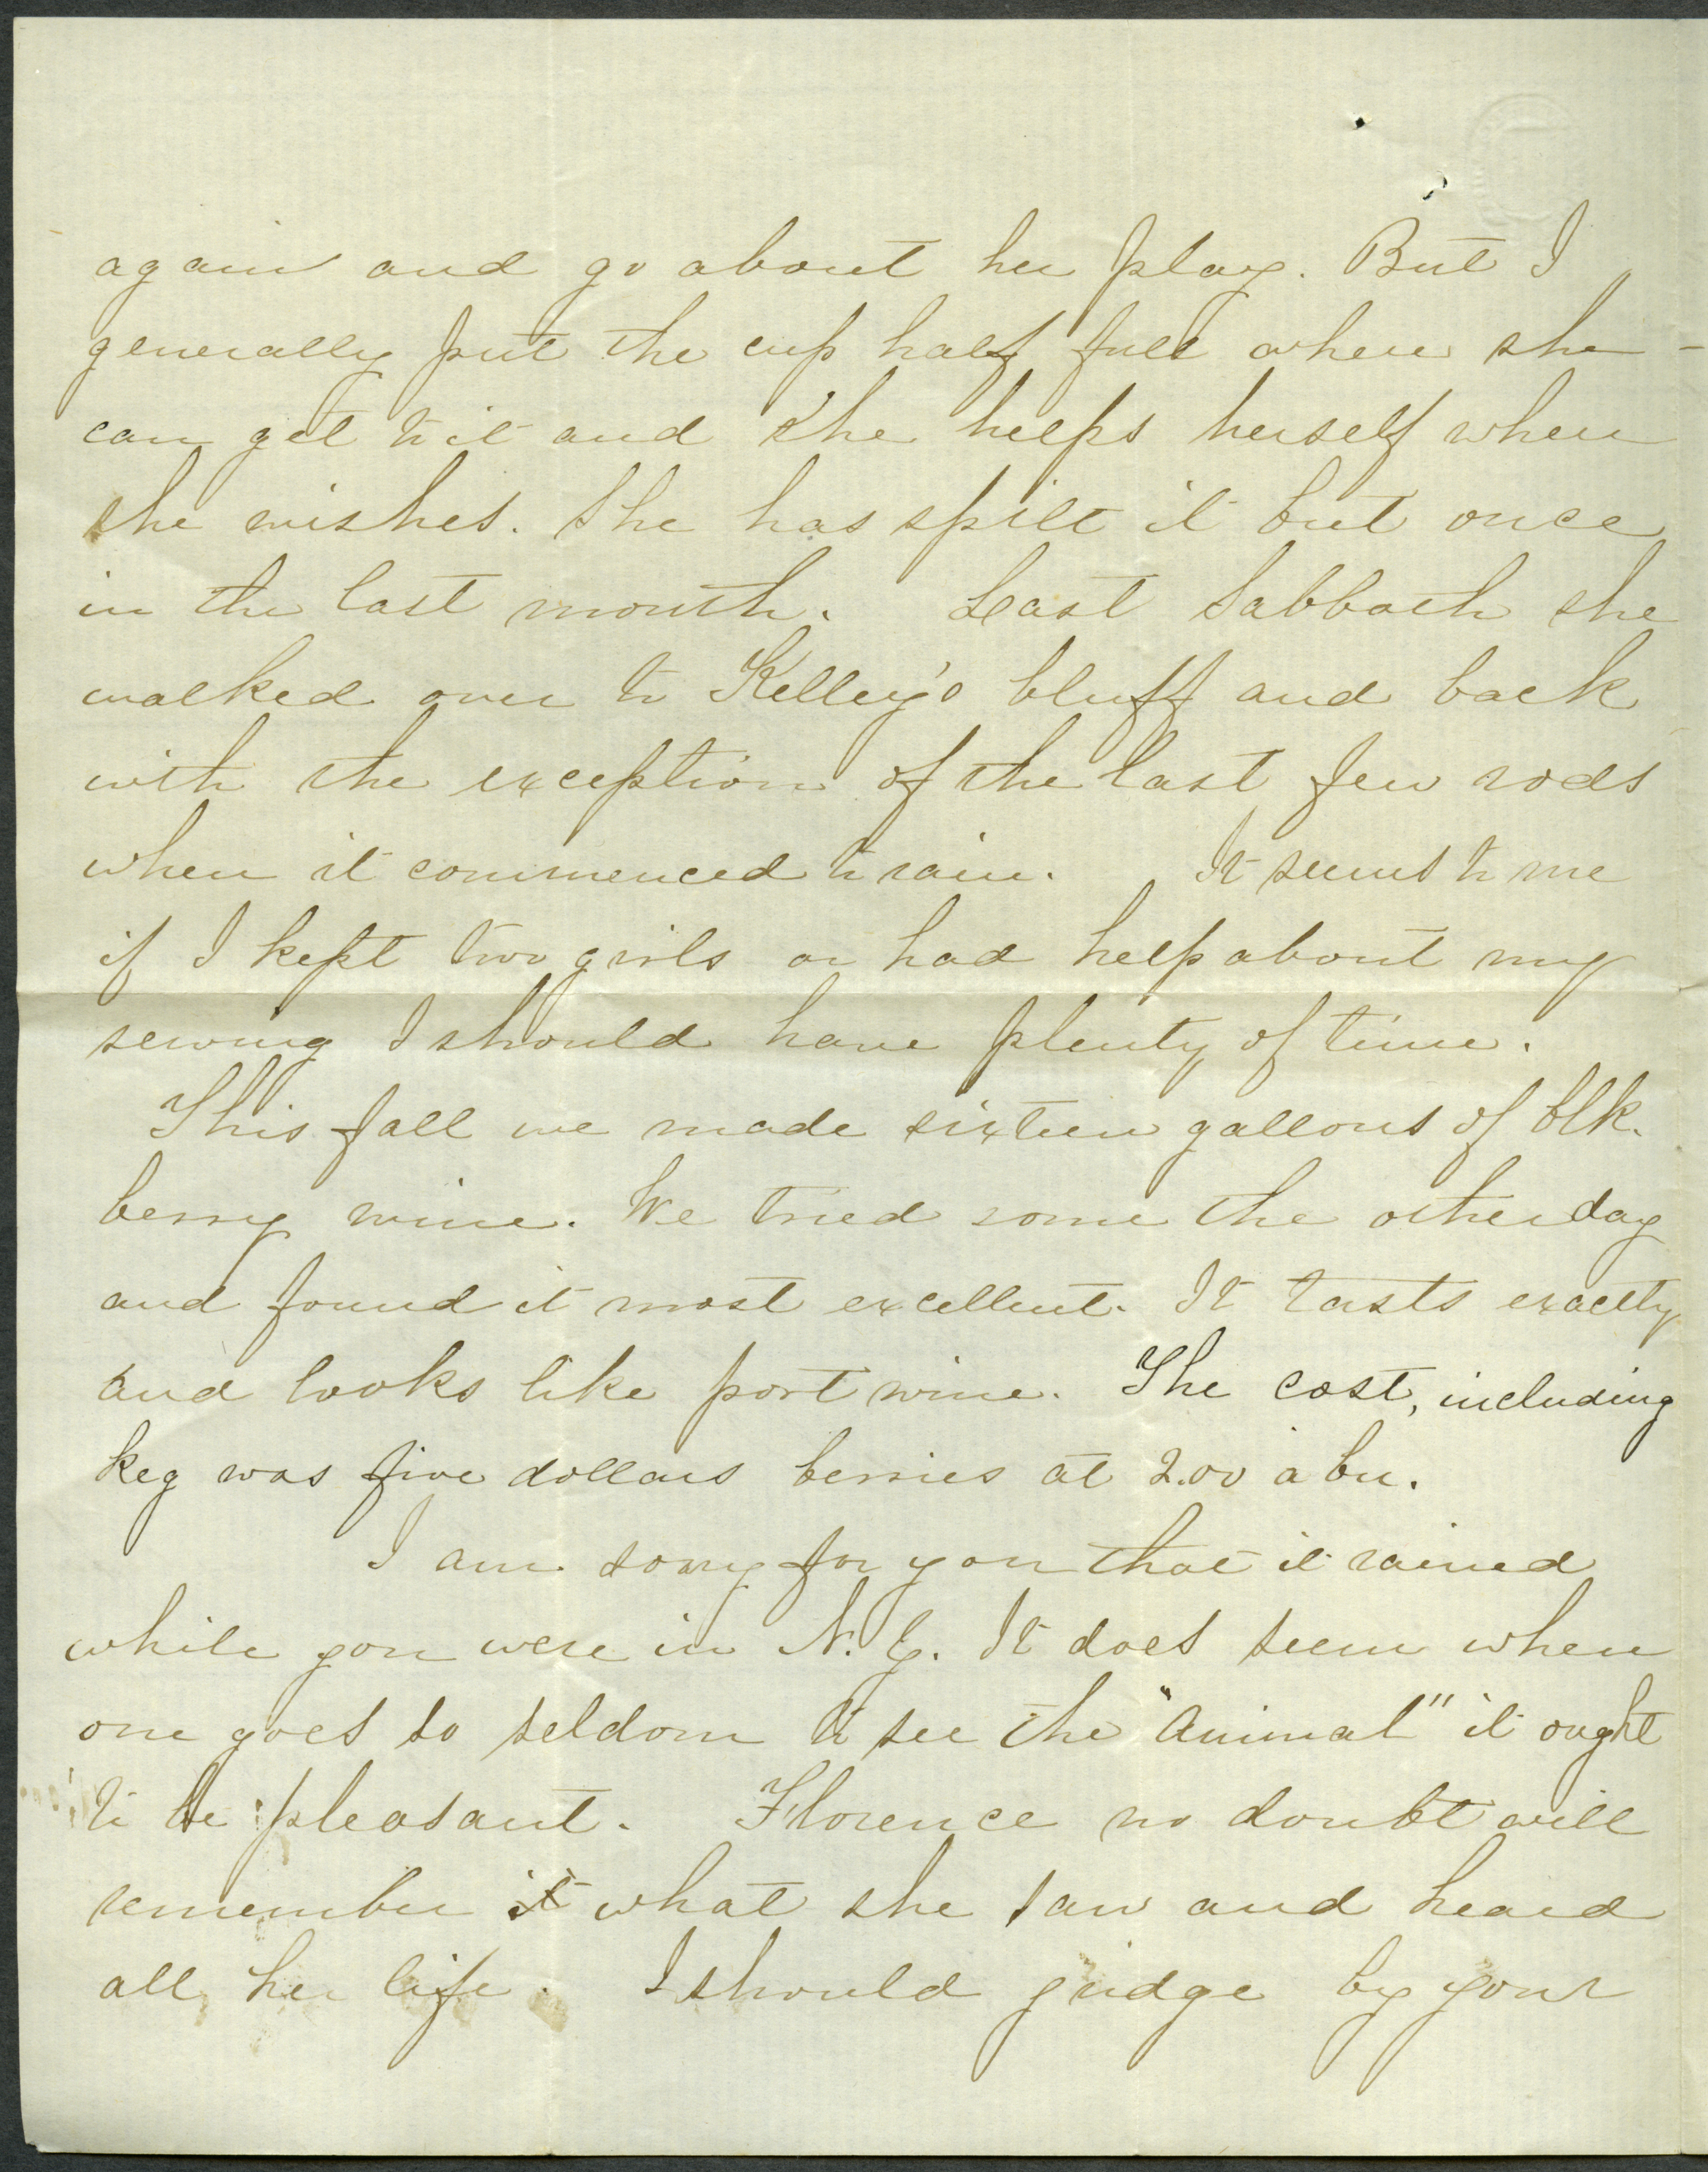 again and go about her play. But I
generally put the cup half full where she -
can get to it and she helps herself when
she wishes. She has spilt it but once
in the last month. Last Sabbath she
walked over to Kelley's bluff and back
with the exception of the last few rods
when it commenced to rain. It seems to me
if I kept two girls or had help about my
sewing I should have plenty of time.
This fall we made sixteen gallons of blk.
berry wine. We tried some the other day
and found it most excellent. It tasts exactly
and looks like port wine. The cost, including
keg was five dollars berries at 2.00 a bu.
I am sorry for you that it rained
while you were in N.Y. It does seem when
one goes so seldom to see the "animal" it ought
to be pleasant. Florence no doubt will
remember it what she saw and heard
all her life. I should judge by your